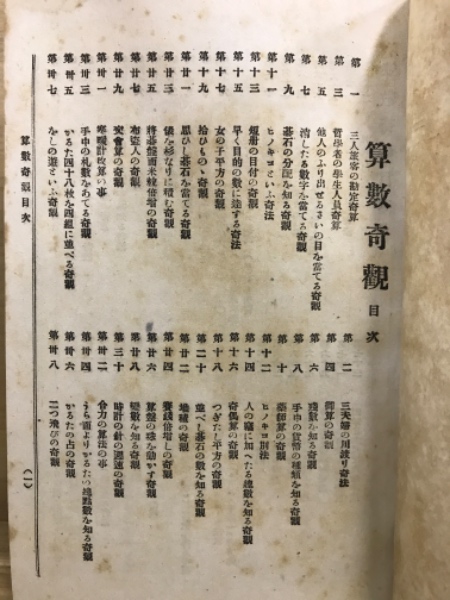 算數奇觀 目次
第一 三人旅客の勘定奇算
第三 哲學者の學生人員奇算
第五 他人のふり出せるさいの目を當てる奇觀
第七 消したる數字を當てる奇觀
第九 碁石の分配を知る奇觀
第十一 ヒノキコといふ奇法
第十三 短册の目付の奇觀
第十五 早く目的の數に達する奇法
第十七 女の子平方の奇觀
第十九 拾ひもの、奇觀
第廿一 思ひし碁石を當てる奇觀
第廿三 俵を杉なりに積む奇觀
第廿五 將碁盤面米粒倍增の奇觀
第廿七 布盜人の奇觀
第廿九 交會算の奇觀
第卅一 寒暖計改算の事
第卅三 手中の札數をあてる奇觀
第卅五 かるた四十八枚を四組に並べる奇觀
第卅七 をしの遊といふ奇觀
第二 三夫婦の川渡り奇法
第四 御算の奇觀
第六 殘數を知る奇觀
第八 手中の貨幣の種類を知る奇觀
第十 藥師算の奇觀
第十二 ヒノキコ別法
第十四 人の竊に加へたる總數を知る奇觀
第十六 奇偶算の奇觀
第十八 つぎたし平方の奇觀
第二十 並べし碁石の數を知る奇觀
第廿二 地球の奇觀
第廿四 賽錢倍增しの奇觀
第廿六 算盤の珠を動かす奇觀
第廿八 變數を知る奇觀
第三十 時計の針の遲速の奇觀
第卅二 合力の算法の事
第卅四 うら面よりかるたの總點數を知る奇觀
第卅六 かるたの占の奇觀
第卅八 二つ飛びの奇觀
算數奇觀目次 (一)